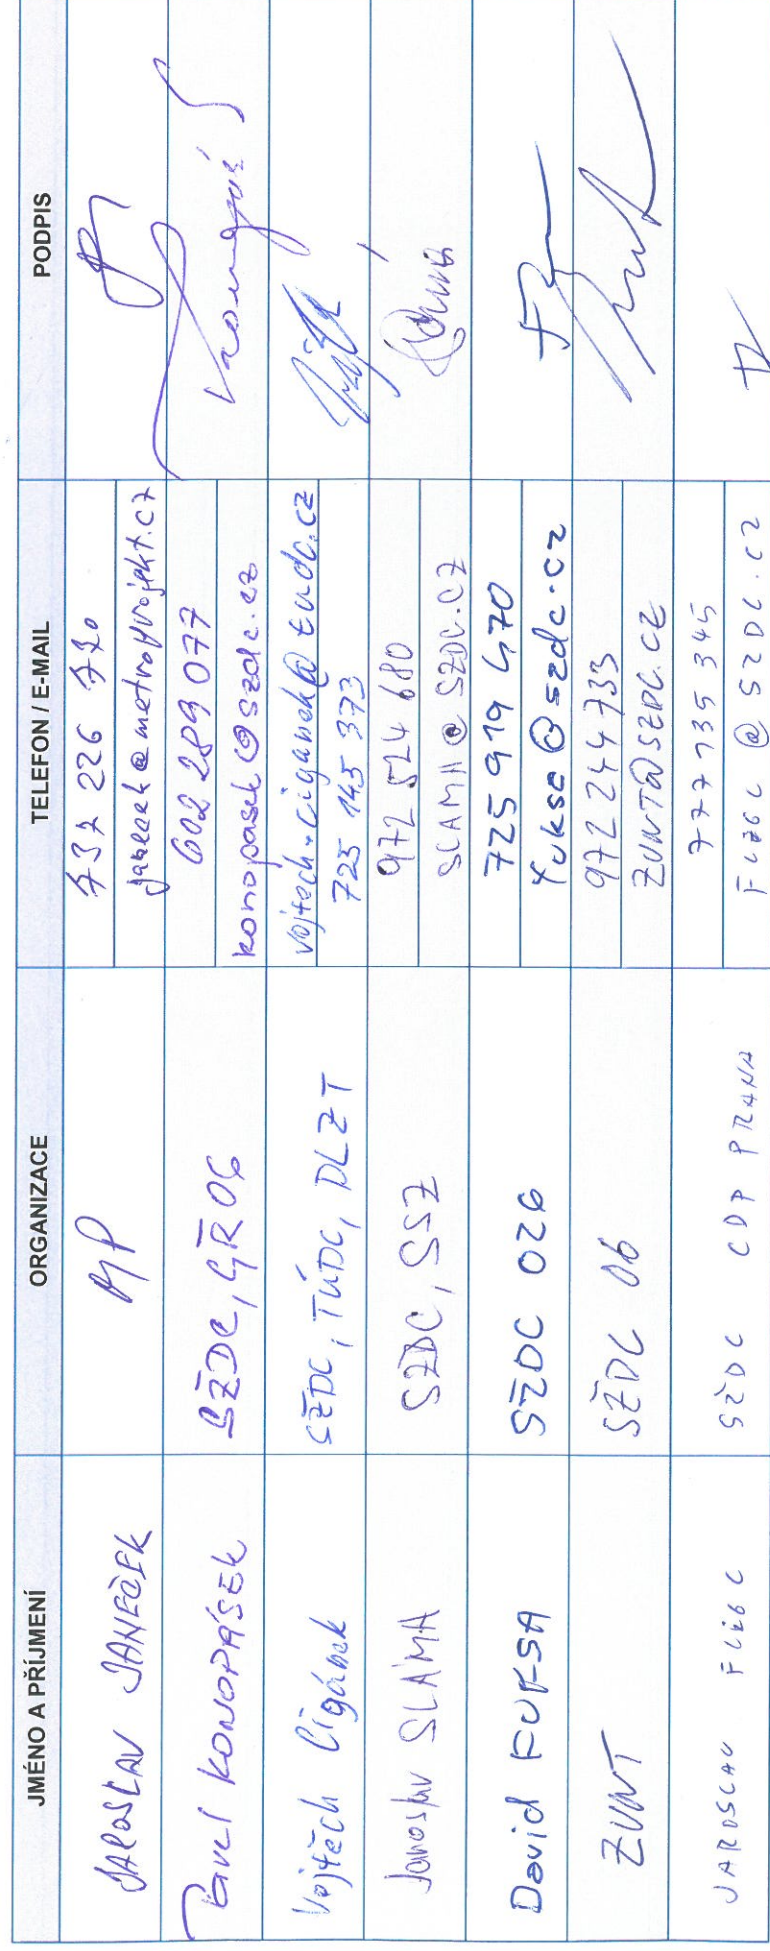 JMÉNO A PŘÍJMENÍ ORGANIZACE TELEFON / E-MAIL PODPIS
JAROSLAV JANEČEK MP 737 226 770
janecek@metroprojekt.cz
Pavel KONOPÁSEK SŽDC, GŘ O6 602 289 077
konopasek@szdc.cz
Vojtěch Cigánek SŽDC, TÚDC, DLZT vojtech.ciganek@tudc.cz
725 145 373
Jaroslav SLÁMA SŽDC, SSZ 972 524 680
SLAMA@SZDC.CZ
David FUKSA SŽDC O26 725 919 470
Fuksa@szdc.cz
ZUNT SŽDC O6 972 244 733
ZUNT@SZDC.CZ
JAROSLAV FLEGL SŽDC CDP PRAHA 777 735 345
FLEGL@SZDC.CZ